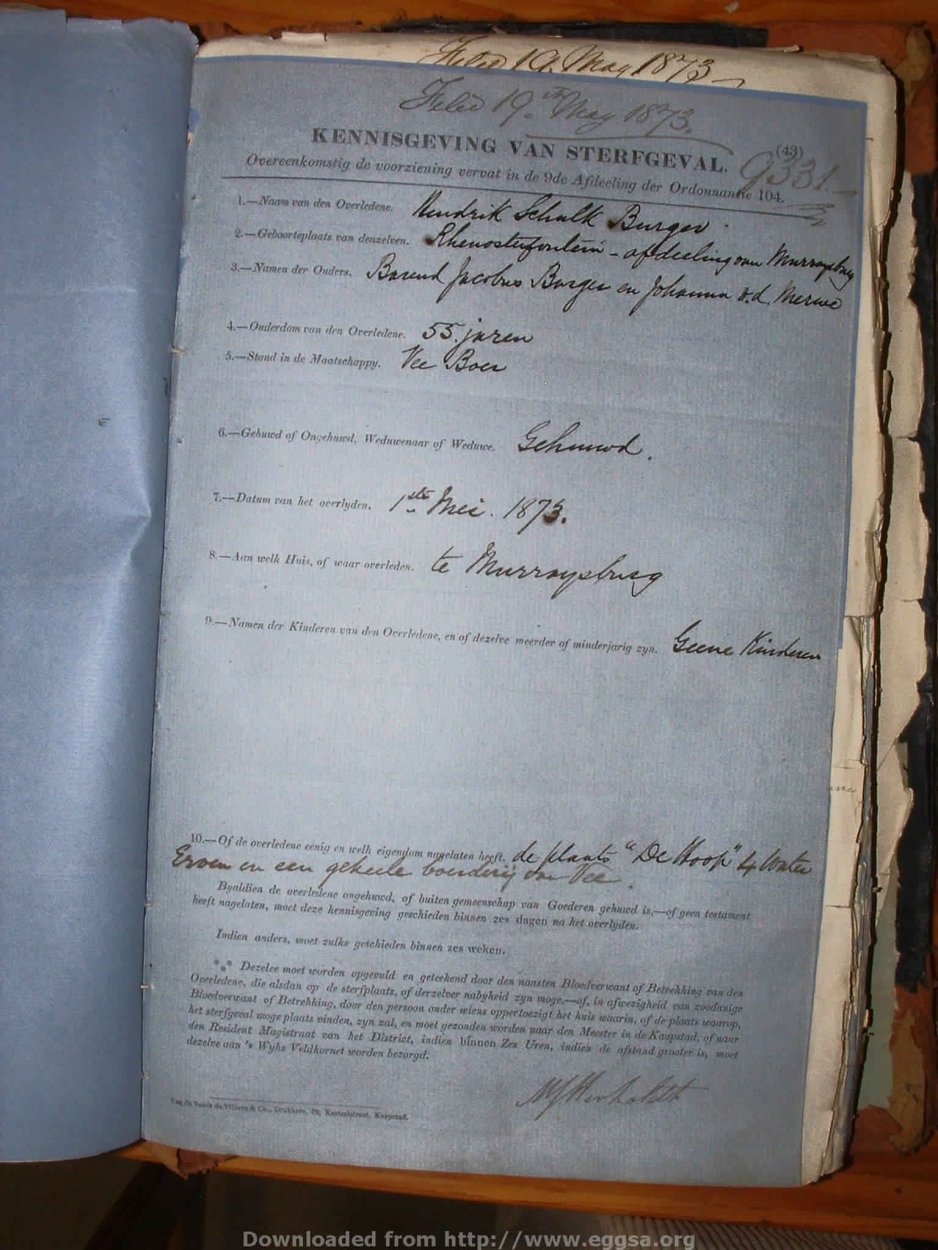 Filed 19 May 1873
Filed 19th May 1873.
KENNISGEVING VAN STERFGEVAL. (43)
9331.
Overeenkomstig de voorziening vervat in de 9de Afdeeling der Ordonnantie 104.
1.—Naam van den Overledene. Hendrik Schalk Burger
2.—Geboorteplaats van denzelven. Rhenosterfontein - afdeeling van Murraysburg
3.—Namen der Ouders. Barend Jacobus Burger en Johanna v.d. Merwe
4.—Ouderdom van den Overledene. 55 jaren
5.—Stand in de Maatschappy. Vee Boer
6.—Gehuwd of Ongehuwd, Weduwenaar of Weduwe. Gehuwd.
7.—Datum van het overlyden. 1ste Mei. 1873.
8.—Aan welk Huis, of waar overleden. te Murraysburg
9.—Namen der Kinderen van den Overledene, en of dezelve meerder of minderjarig zyn. Geene Kinderen
10.—Of de overledene eenig en welk eigendom nagelaten heeft. de plaats "De Hoop" 4 Water
Erven en een geheele boerderij van Vee.
Byaldien de overledene ongehuwd, of buiten gemeenschap van Goederen gehuwd is,—of geen testament
heeft nagelaten, moet deze kennisgeving geschieden binnen zes dagen na het overlyden.
Indien anders, moet zulks geschieden binnen zes weken.
⁂ Dezelve moet worden opgevuld en geteekend door den naasten Bloedverwant of Betrekking van den
Overledene, die alsdan op de sterfplaats, of derzelver nabyheid zyn moge,—of, in afwezigheid van zoodanige
Bloedverwant of Betrekking, door den persoon onder wiens oppertoezigt het huis waarin, of de plaats waarop,
het sterfgeval moge plaats vinden, zyn zal, en moet gezonden worden naar den Meester in de Kaapstad, of naar
den Resident Magistraat van het District, indien binnen Zes Uren, indien de afstand grooter is, moet
dezelve aan 's Wyks Veldkornet worden bezorgd.
Van de Sandt de Villiers & Co., Drukkers, Kasteelstraat, Kaapstad.
Downloaded from http://www.eggsa.org